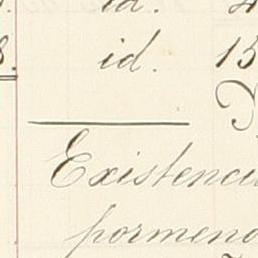 id.
8. id. 15
Existencia
pormeno